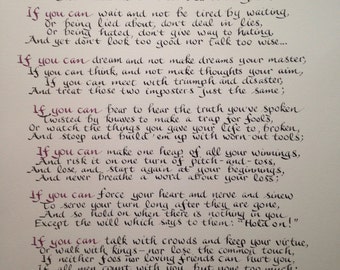 If you can wait and not be tired by waiting,
Or being lied about, don't deal in lies,
Or being hated, don't give way to hating,
And yet don't look too good nor talk too wise...
If you can dream and not make dreams your master,
If you can think, and not make thoughts your aim,
If you can meet with triumph and disaster,
And treat those two imposters just the same;
If you can bear to hear the truth you've spoken
Twisted by knaves to make a trap for fools,
Or watch the things you gave your life to, broken,
And stoop and build 'em up with worn out tools;
If you can make one heap of all your winnings,
And risk it on one turn of pitch-and-toss,
And lose, and start again at your beginnings,
And never breathe a word about your loss;
If you can force your heart and nerve and sinew
To serve your turn long after they are gone,
And so hold on when there is nothing in you
Except the will which says to them: "Hold on!"
If you can talk with crowds and keep your virtue,
Or walk with kings—nor lose the common touch,
If neither foes nor loving friends can hurt you,
If all men count with you, but none too much;